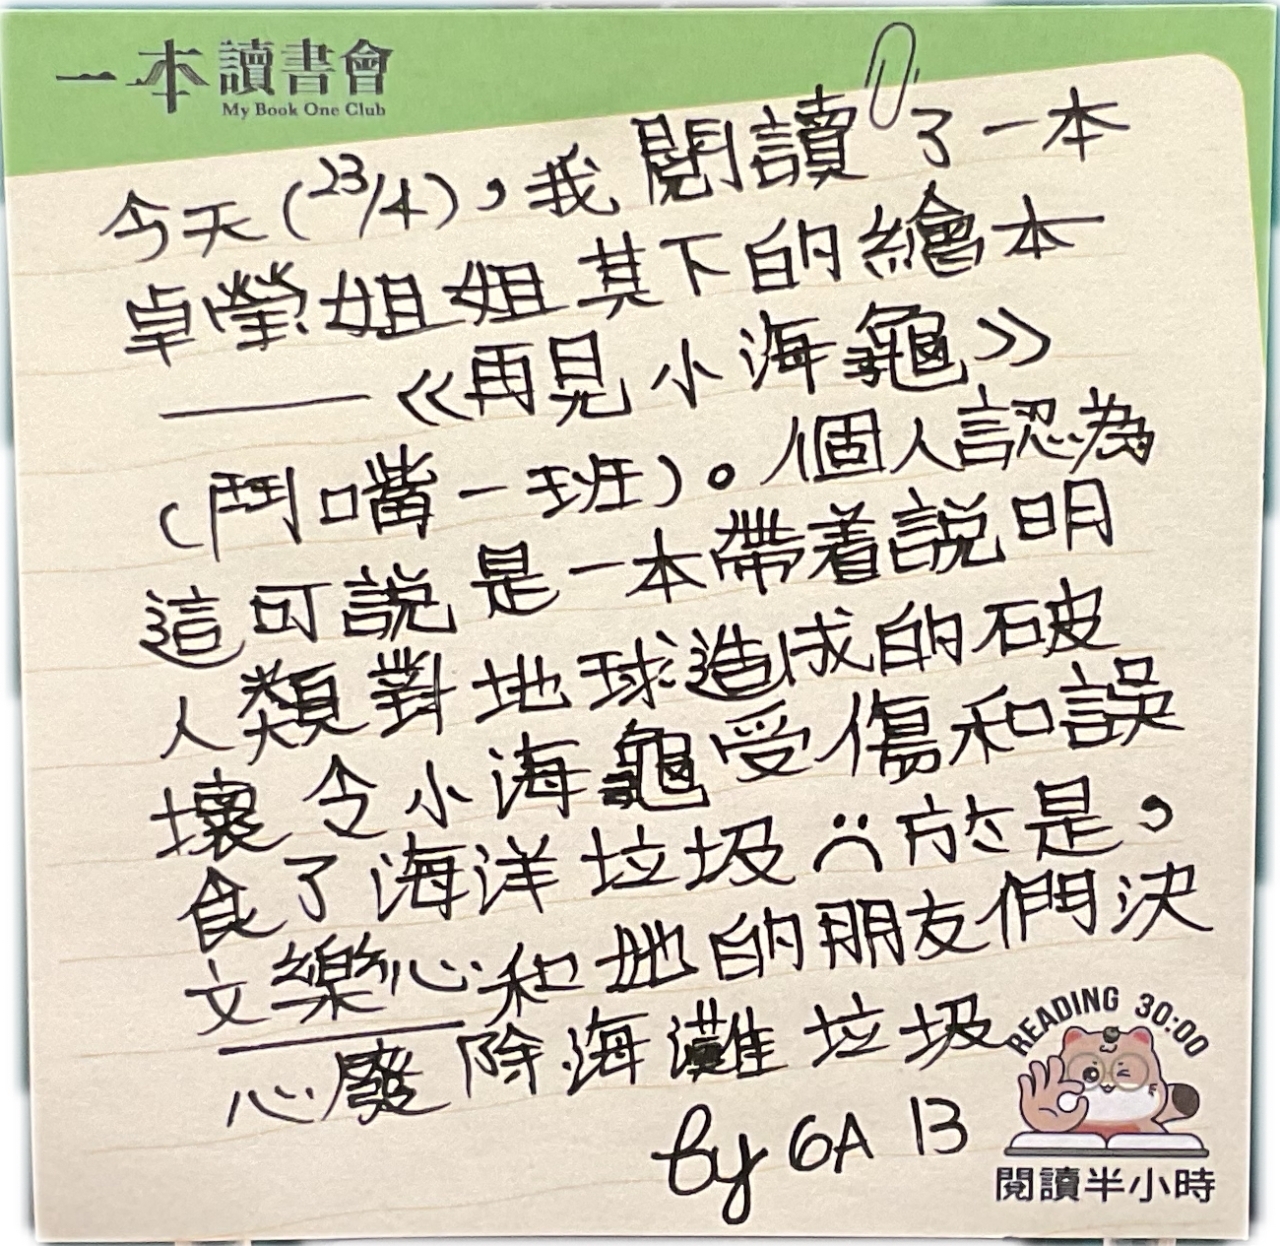 一本讀書會
My Book One Club
今天(23/4)，我閱讀了一本
卓瑩姐姐其下的繪本
——《再見小海龜》
(鬥嘴一班)。個人認為
這可說是一本帶着說明
人類對地球造成的破
壞令小海龜受傷和誤
食了海洋垃圾☹於是，
文樂心和她的朋友們決
心廢除海灘垃圾
by 6A 13
READING 30:00
閱讀半小時